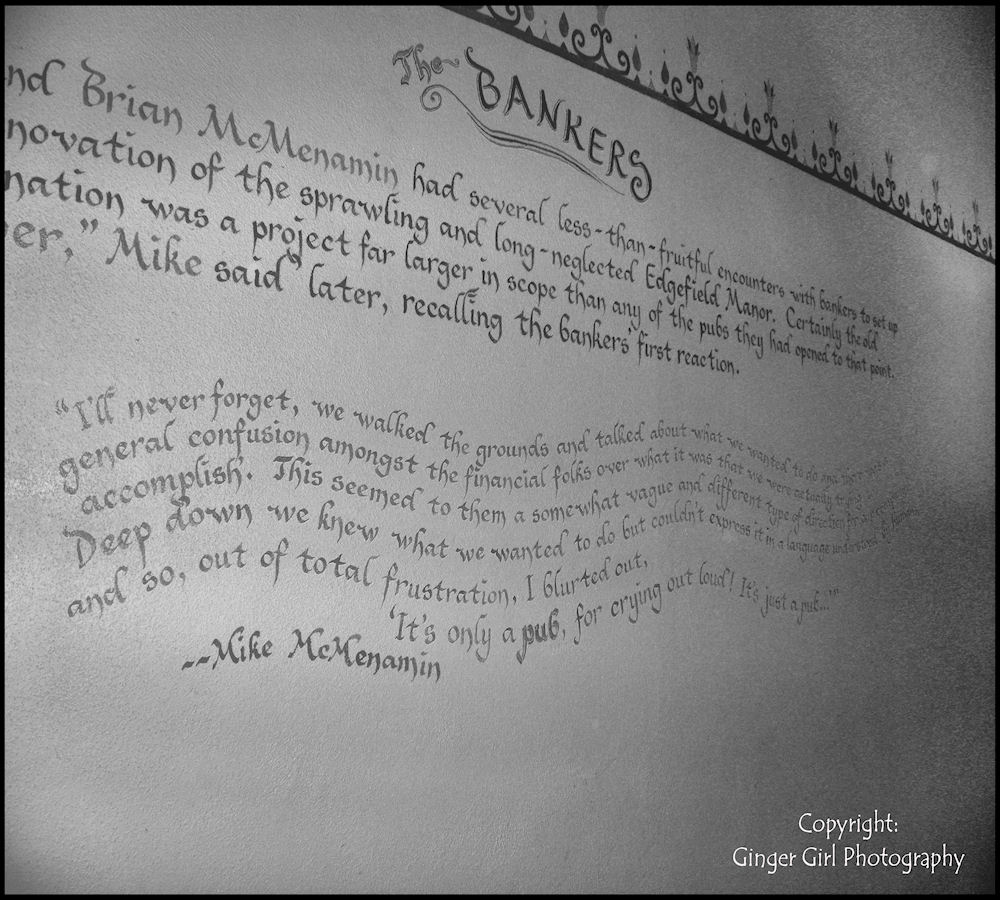 The BANKERS
nd Brian McMenamin had several less-than-fruitful encounters with bankers to set up
novation of the sprawling and long-neglected Edgefield Manor. Certainly the old
nation was a project far larger in scope than any of the pubs they had opened to that point.
er," Mike said later, recalling the bankers' first reaction.
"I'll never forget, we walked the grounds and talked about what we wanted to do and there was
general confusion amongst the financial folks over what it was that we were actually trying
accomplish. This seemed to them a somewhat vague and different type of direction for a
Deep down we knew what we wanted to do but couldn't express it in a language understood by
and so, out of total frustration, I blurted out,
'It's only a pub, for crying out loud! It's just a pub...'"
--Mike McMenamin
Copyright:
Ginger Girl Photography